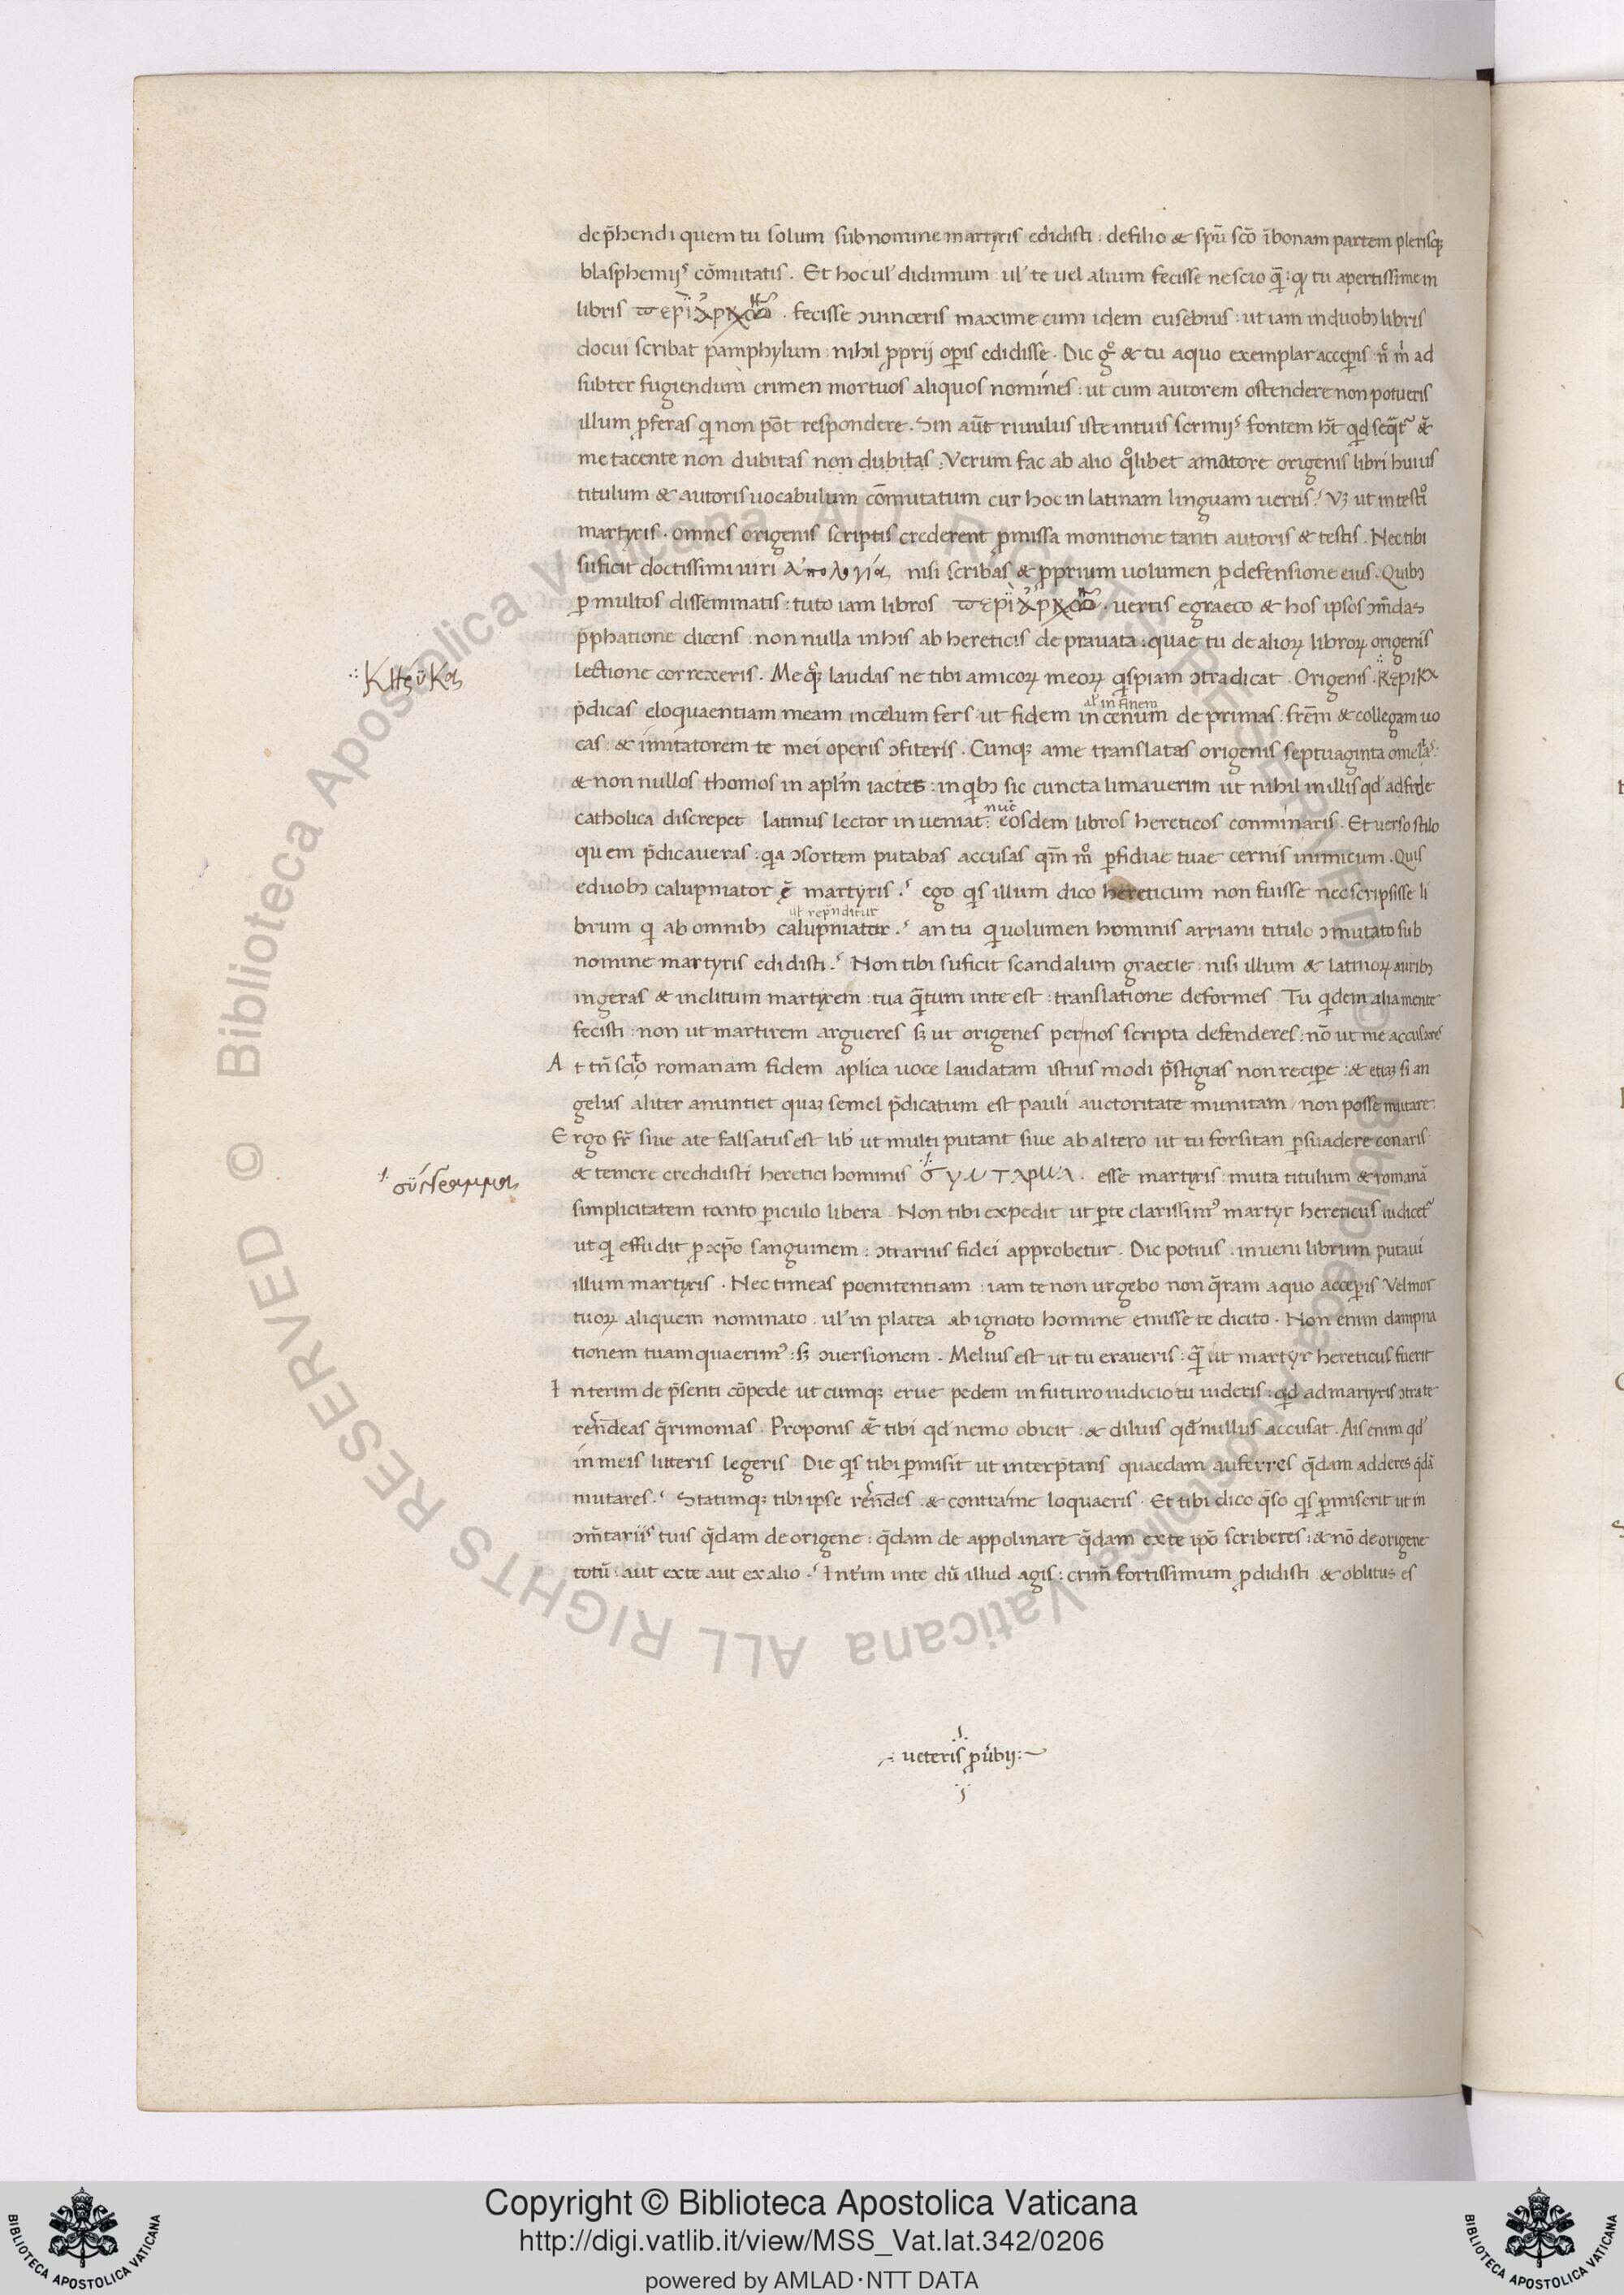 dep̄hendi quem tu solum sub nomine martyris edidisti : de filio & spū scō ī bonam partem plerisq;
blasphemijs cōmutatis . Et hoc ul' didimum ul' te uel alium fecisse nescio : tu apertissime in
libris fecisse ɔuinceris maxime cum idem eusebius : ut iam in duobȝ libris
docui scribat pamphylum : nihil ꝓprij oꝑis edidisse . Dic gͦ & tu a quo exemplar acceꝑis : ad
subter fugiendum crimen mortuos aliquos nomines : ut cum autorem ostendere non potueris
illum ꝓferas qi non pōt respondere . Sin aūt riuulus iste in tuis scrinijs fontem
me tacente non dubitas non dubitas . Verum fac ab alio qͦlibet amatore origenis libri huius
titulum & autoris uocabulum cōmutatum cur hoc in latinam linguam uertis ? ut
martyris . omnes origenis scriptis crederent p̄missa monitione tanti autoris & testis . Nec tibi
suficit doctissimi uiri ἀπολογίας nisi scribas & ꝓprium uolumen ꝓ defensione eius . Quibȝ
ꝑ multos disseminatis : tuto iam libros uertis e graeco & hos ipsos
p̄phatione dicens : non nulla in his ab hereticis de prauata : quae tu de alioꝝ libroꝝ origenis
lectione correxeris . Meqͦȝ laudas ne tibi amicoꝝ meoꝝ qispiam ɔtradicat . Origenis
p̄dicas eloquaentiam meam in celum fers ut fidem in cenum de primas : frēm & collegam uo
al' in finem
cas : & imitatorem te mei operis ɔfiteris . Cunqȝ a me translatas origenis septuaginta omelias :
& non nullos thomos in aplm̄ iactes : in qibȝ sic cuncta limauerim ut nihil in illis qd' ad fide
catholica discrepet latinus lector in ueniat : eosdem libros hereticos conminaris . Et uerso stilo
nūc
quem p̄dicaueras : qia ɔsortem putabas accusas qm̄ mͦ ꝑfidiae tuae cernis inimicum . Quis
e duobȝ calupniator ē martyris ? ego qis illum dico hereticum non fuisse nec scripsisse li
brum qi ab omnibȝ calupniatur ? an tu qi uolumen hominis arriani titulo ɔmutato sub
ul' rep̄nditur
nomine martyris edidisti ? Non tibi suficit scandalum graecie nisi illum & latinoꝝ auribȝ
ingeras & inclitum martyrem : tua qāntum in te est : translatione deformes Tu qidem alia mente
fecisti : non ut martirem argueres sȝ ut origenes per nos scripta defenderes : nō ut me accusares
At tn̄ scito romanam fidem aplica uoce laudatam istius modi p̄stigias non reciꝑe : & etiaȝ si an
gelus aliter anuntiet quaȝ semel p̄dicatum est pauli auctoritate munitam non posse mutare .
Ergo fr̄ siue a te falsatus est lib' ut multi putant siue ab altero ut tu forsitan ꝑsuadere conaris
& temere credidisti heretici hominis σγνταρμα . esse martyris : muta titulum & romanā
simplicitatem tanto ꝑiculo libera . Non tibi expedit ut ꝑ te clarissimꝰ martyr hereticus iudicet̄
ut qi effudit ꝓ xp̄o sanguinem : ɔtrarius fidei approbetur . Dic potius : inueni librum putaui
illum martyris . Nec timeas poenitentiam : iam te non urgebo non qāram a quo acceꝑis . Vel mor
tuoꝝ aliquem nominato . ul' in platea ab ignoto homine emisse te dicito . Non enim dampna
tionem tuam quaerimꝰ : sȝ ɔuersionem . Melius est ut tu eraueris : qā ut martyr hereticus fuerit
Interim de p̄senti cōpede ut cumqȝ erue pedem in futuro iudicio tu uideris : qid ad martyris ɔtra te
rn̄deas qārimonias . Proponis & tibi qd' nemo obicit : & diluis qd' nullus accusat . Ais enim qd'
in meis litteris legeris Dic qis tibi ꝑmisit ut interp̄tans quaedam auferres qādam adderes
mutares ? Statimqȝ tibi ipse rn̄des . & contra me loquaeris . Et tibi dico qāso qis ꝑmiserit ut in
ɔm̄tarijs tuis qādam de origene : qādam de appolinare qādam ex te ipō scriberes : & nō de origene
totū : aut ex te aut ex alio ? Int'im inte dū illud agis : crim̄ fortissimum ꝓdidisti & oblitus es
σύνταγμα
ueteris ꝓu'bij :~
Copyright © Biblioteca Apostolica Vaticana
http://digi.vatlib.it/view/MSS_Vat.lat.342/0206
powered by AMLAD·NTT DATA
BIBLIOTECA APOSTOLICA VATICANA
BIBLIOTECA APOSTOLICA VATICANA
© Biblioteca Apostolica Vaticana ALL RIGHTS RESERVED
© Biblioteca Apostolica Vaticana ALL RIGHTS RESERVED